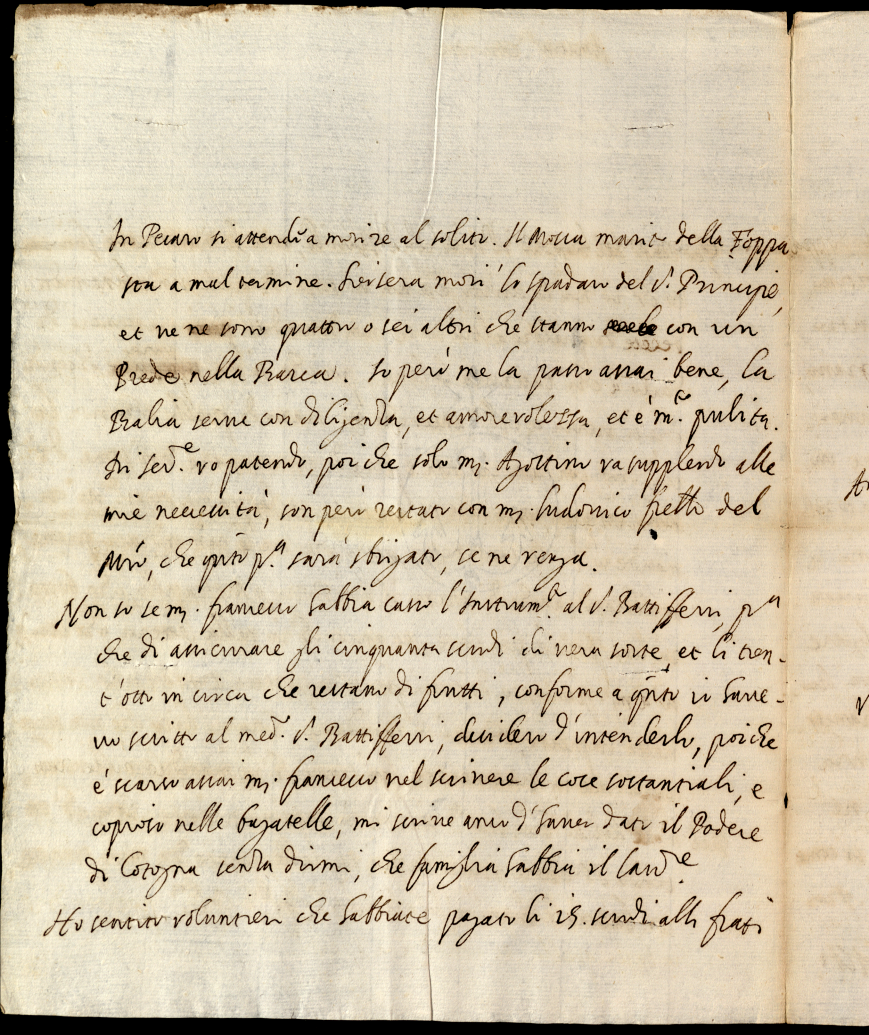 In Pesaro si attende a morire al solito. Il Mosca marito della Foppa
sta a mal termine. Hiersera morì lo spadaro del S. Principe,
et ve ne sono quattro o sei altri che stanno con un
Piede nella Barca. Io però me la passo assai bene, la
Balia serve con diligenza, et amorevolezza, et è m.to pulita.
Di ser.re vo patendo, poi che solo m. Agostino va supplendo alle
mie necessità, son però restato con m. Ludovico fr̃ello del
Mrõ, che q̃nto p.a sarà sbrigato, se ne venga.
Non so se m. francesco habbia casso l'Instrum.to al S. Battiferri, p.a
che di assicurare gli cinquanta scudi di vera sorte, et li tren-
t'otto in circa che restano di frutti, conforme a q̃nto io have-
vo scritto al med.o S. Battiferri, desidero d'intenderlo, poiche
é scarso assai m. francesco nel scrivere le cose sostantiali, e
copioso nelle bagatelle, mi scrive anco d'haver dato il Podere
di Cotogna senza dirmi, che famiglia habbia il lav.re
Ho sentito voluntieri che habbiate pagato li 15. scudi alli frati